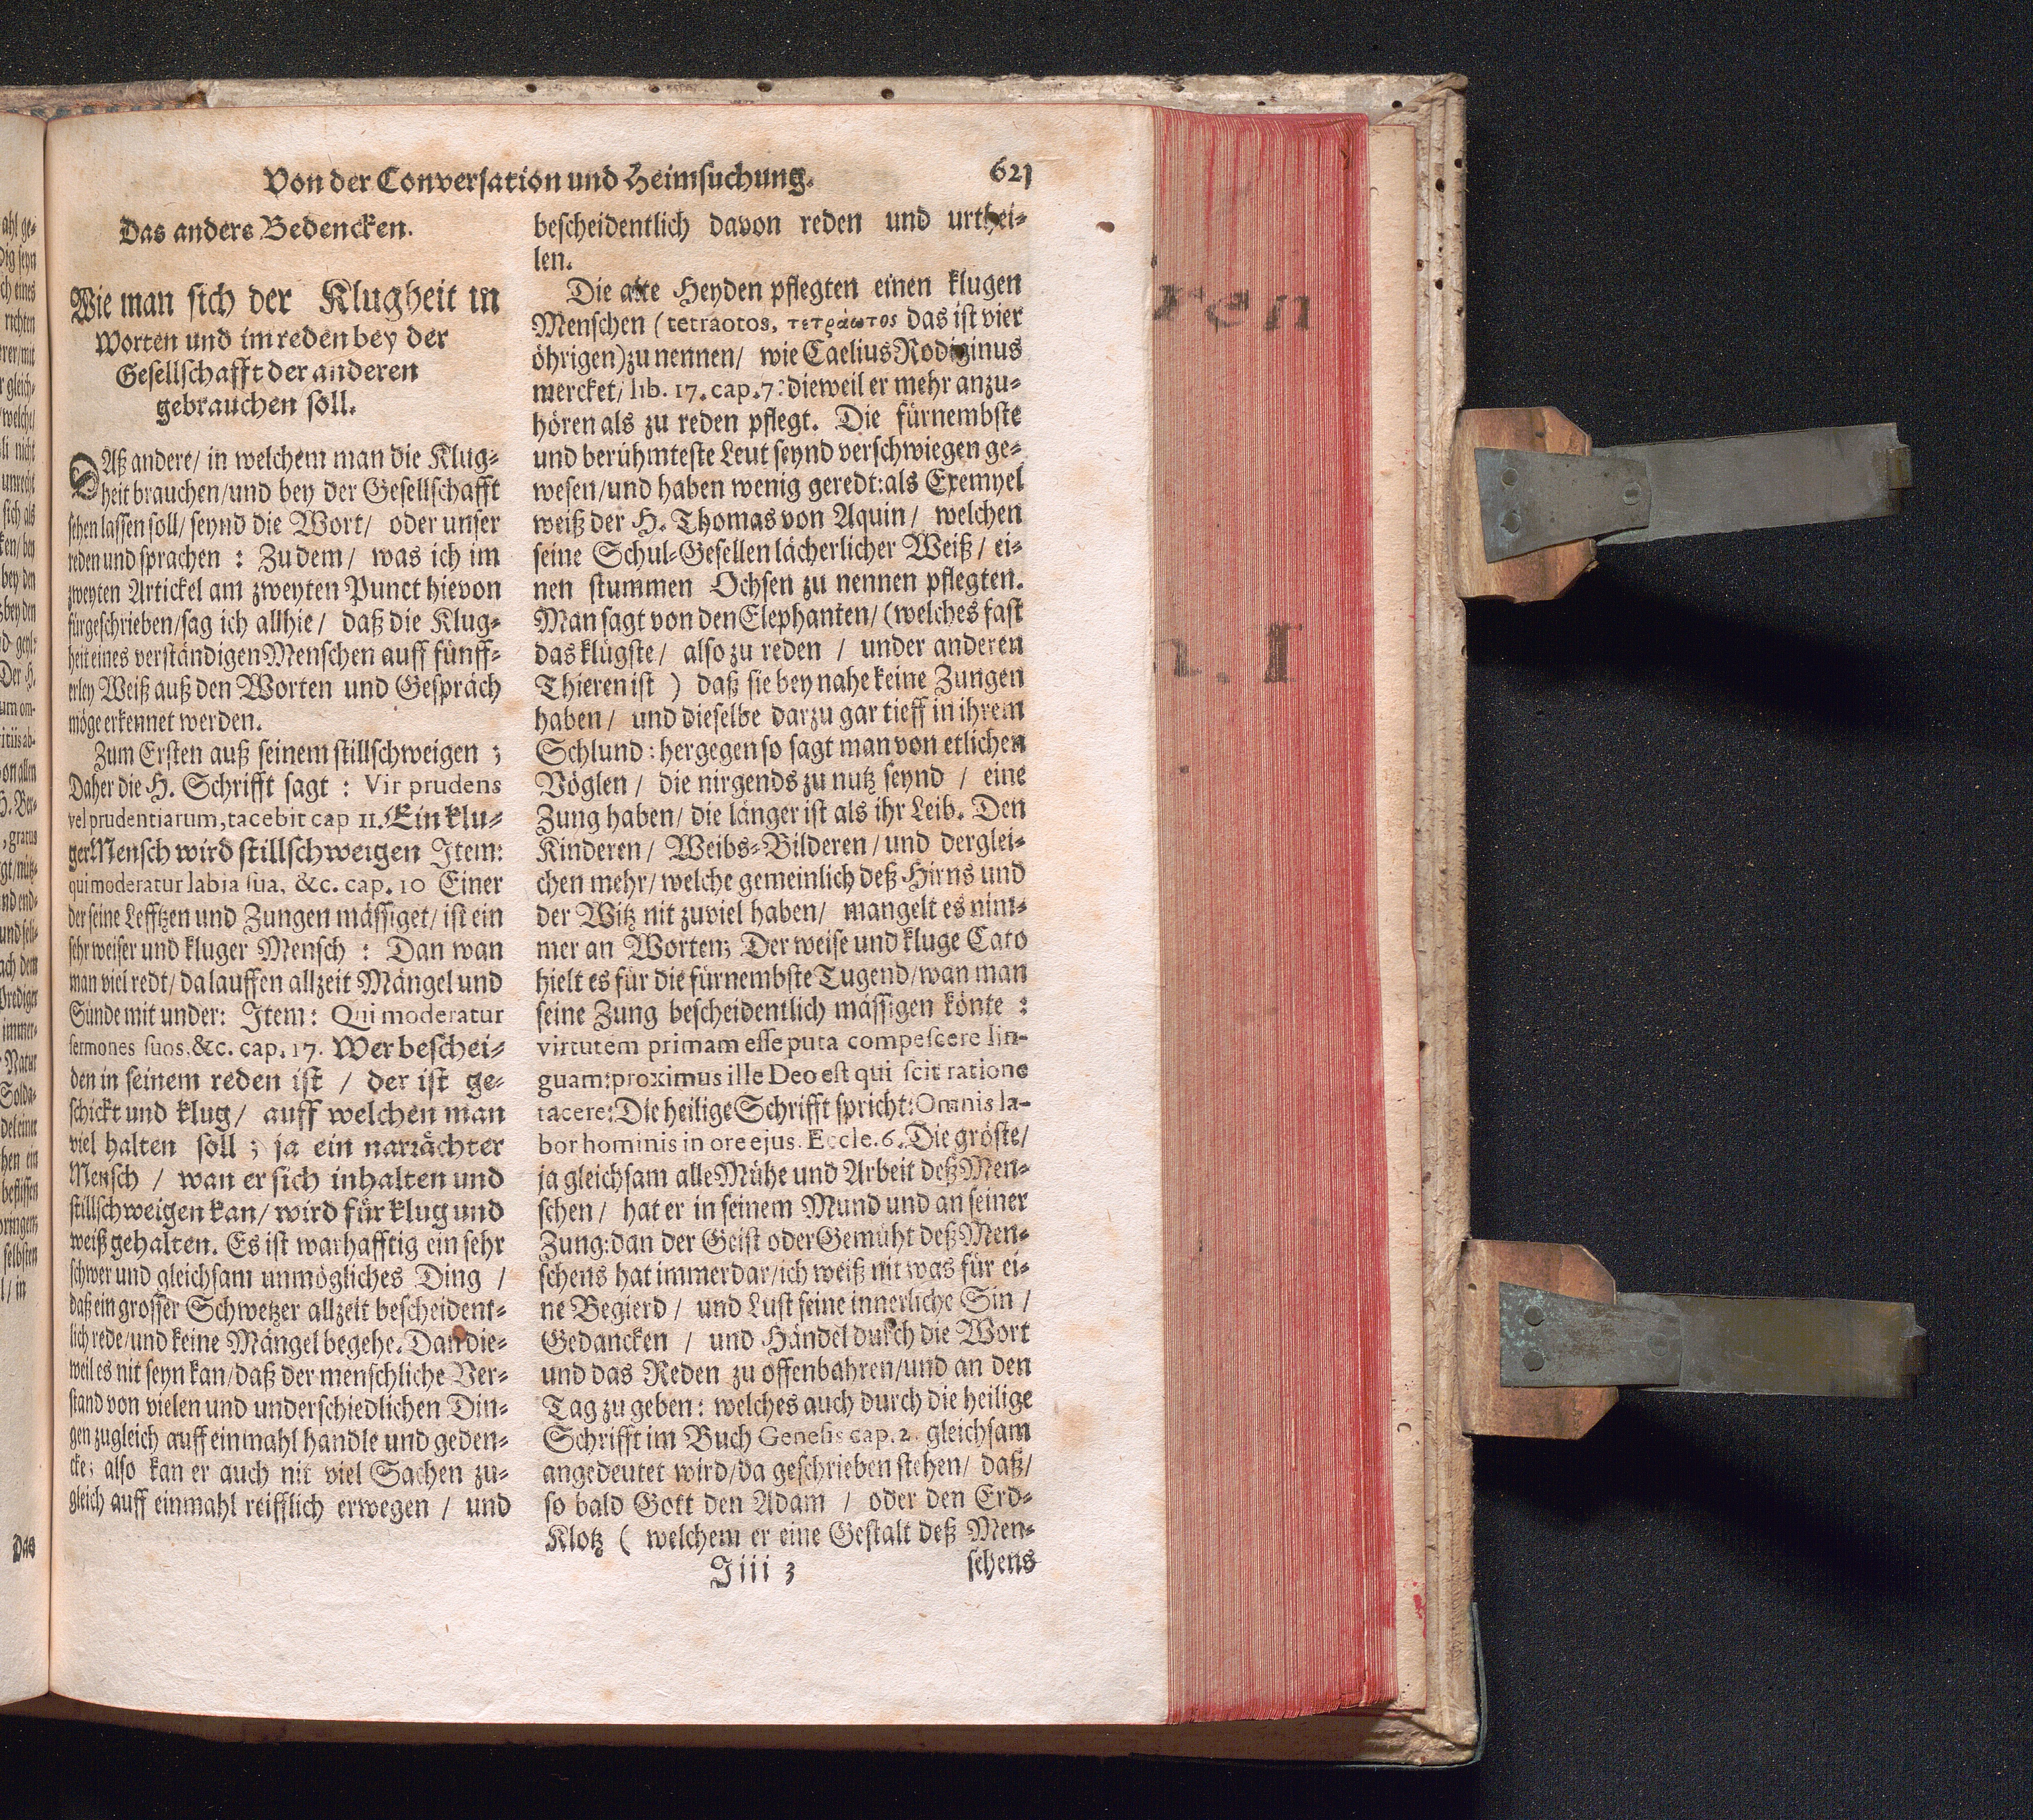 Von der Conversation und Heimsuchung. 621
Das anders Bedencken.
Wie man sich der Klugheit in
Worten und im reden bey der
Gesellschafft der anderen
gebrauchen soll.
DAß andere/ in welchem man die Klug-
heit brauchen/und bey der Gesellschafft
sehen lassen soll/ seynd die Wort/ oder unser
reden und sprachen : Zu dem/ was ich im
zweyten Artickel am zweyten Punct hievon
fürgeschrieben/sag ich allhie/ daß die Klug-
heit eines verständigen Menschen auff fünff-
erley Weiß auß den Worten und Gespräch
möge erkennet werden.
Zum Ersten auß seinem stillschweigen ;
Daher die H. Schrifft sagt : Vir prudens
vel prudentiarum, tacebit cap 11. Ein klu-
ger Mensch wird stillschweigen Item:
qui moderatur labia sua, &c. cap. 10 Einer
der seine Lefftzen und Zungen mässiget/ ist ein
sehr weiser und kluger Mensch : Dan wan
man viel redt/ da lauffen allzeit Mängel und
Sünde mit under: Item: Qui moderatur
sermones suos. &c. cap. 17. Wer beschei-
den in seinem reden ist / der ist ge-
schickt und klug/ auff welchen man
viel halten soll ; ja ein narrächter
Mensch / wan er sich inhalten und
stillschweigen kan/ wird für klug und
weiß gehalten. Es ist warhafftig ein sehr
schwer und gleichsam unmögliches Ding /
daß ein grosser Schwetzer allzeit bescheident-
lich rede/und keine Mängel begehe. Dan die-
weil es nit seyn kan/daß der menschliche Ver-
stand von vielen und underschiedlichen Din-
gen zugleich auff einmahl handle und geden-
cke; also kan er auch nit viel Sachen zu-
gleich auff einmahl reifflich erwegen / und
bescheidentlich davon reden und urthei-
len.
Die alte Heyden pflegten einen klugen
Menschen (tetraotos, τετράωτος das ist vier
öhrigen) zu nennen/ wie Caelius Rodiginus
mercket/ lib. 17. cap. 7: dieweil er mehr anzu-
hören als zu reden pflegt. Die fürnembste
und berühmteste Leut seynd verschwiegen ge-
wesen/und haben wenig geredt: als Exemyel
weiß der H. Thomas von Aquin/ welchen
seine Schul-Gesellen lächerlicher Weiß / ei-
nen stummen Ochsen zu nennen pflegten.
Man sagt von den Elephanten/ (welches fast
das klügste/ also zu reden / under anderen
Thieren ist ) daß sie bey nahe keine Zungen
haben/ und dieselbe darzu gar tieff in ihrem
Schlund: hergegen so sagt man von etlichen
Vöglen / die nirgends zu nutz seynd / eine
Zung haben/ die länger ist als ihr Leib. Den
Kinderen/ Weibs-Bilderen/und derglei-
chen mehr/ welche gemeinlich deß Hirns und
der Witz nit zuviel haben/ mangelt es nim-
mer an Worten; Der weise und kluge Cato
hielt es für die fürnembste Tugend/wan man
seine Zung bescheidentlich mässigen könte :
virtutem primam esse puta compescere lin-
guam: proximus ille Deo est qui scit ratione
tacere: Die heilige Schrifft spricht: Omnis la-
bor hominis in ore ejus. Eccle. 6. Die gröste/
ja gleichsam alle Mühe und Arbeit deß Men-
schen / hat er in seinem Mund und an seiner
Zung: dan der Geist oder Gemüht deß Men-
schens hat immerdar/ich weiß nit was für ei-
ne Begierd / und Lust seine innerliche Sin /
Gedancken / und Händel durch die Wort
und das Reden zu offenbahren/und an den
Tag zu geben: welches auch durch die heilige
Schrifft im Buch Genesis cap. 2. gleichsam
angedeutet wird/da geschrieben stehen/ daß/
so bald Gott den Adam / oder den Erd-
Klotz ( welchem er eine Gestalt deß Men-
Jiii 3 schens